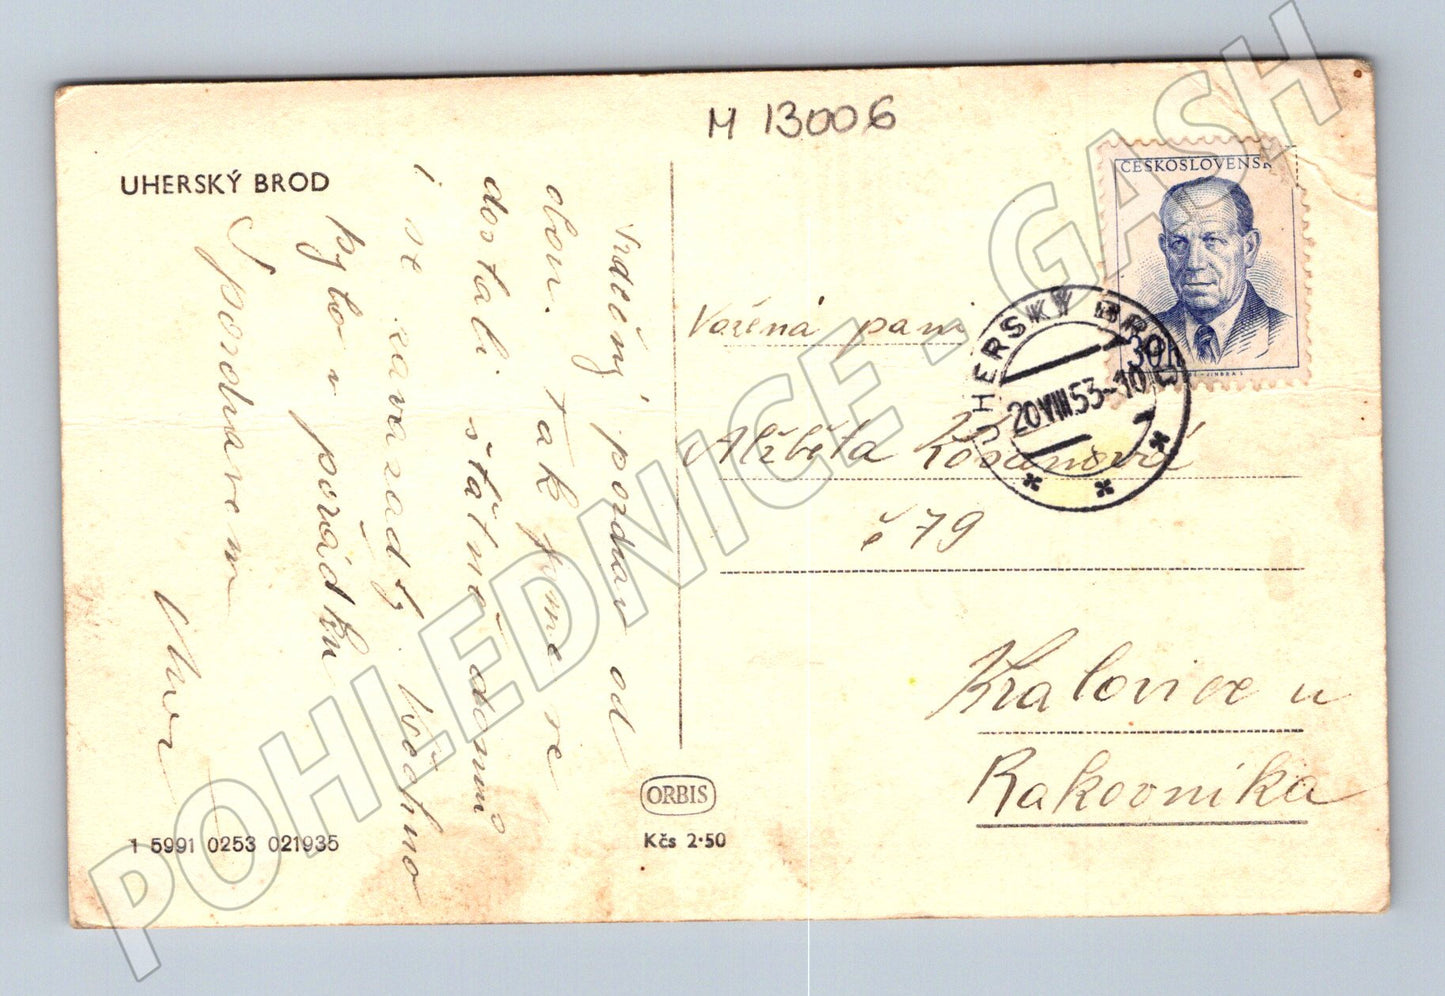 M 13006
UHERSKÝ BROD
ČESKOSLOVENSK
30h
UHERSKÝ BROD
20.VIII.53-10
Srdečný pozdrav od
obou. Tak jsme se
dostali šťastně domů
i se zavazadly. Všechno
bylo v pořádku
S pozdravem
Vážená paní
Alžběta
č 79
Kralovice u
Rakovníka
ORBIS
Kčs 2·50
1 5991 0253 021935
POHLEDNICE - GASH